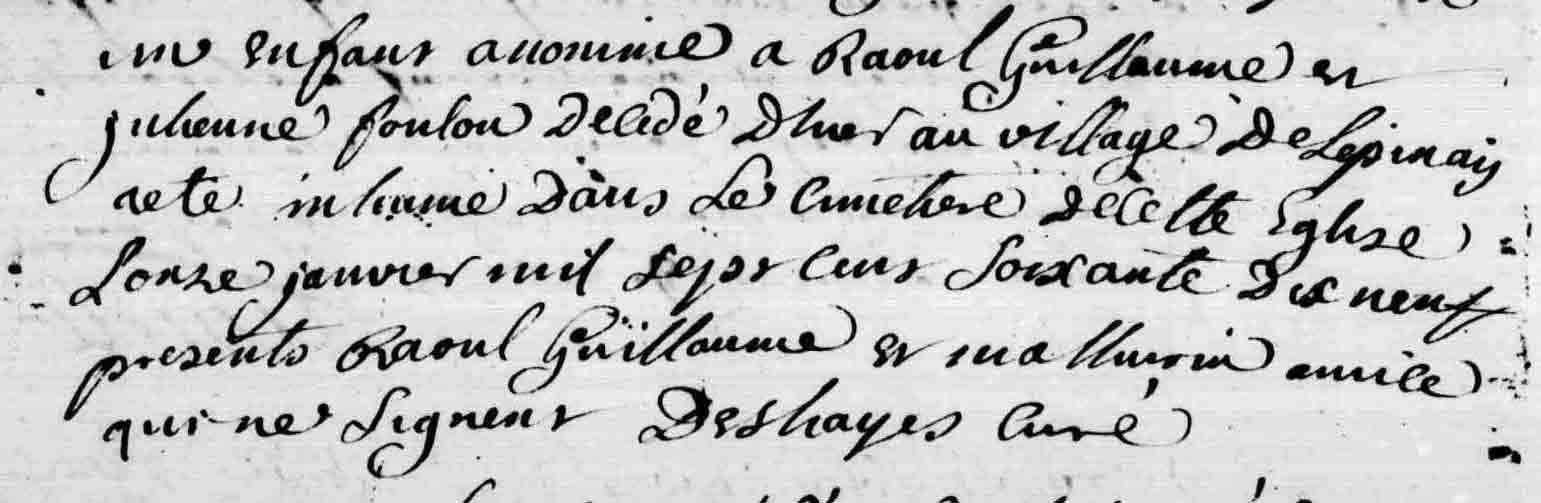 un enfant anonime a Raoul Guillaume et
julienne foulon decedé dhier au village de Lepinay
a ete inhumé dans le cimetiere de cette Eglise
Lonze janvier mil sept cent soixante dix neuf
presents Raoul Guillaume et mathurin
qui ne signent Deshayes curé